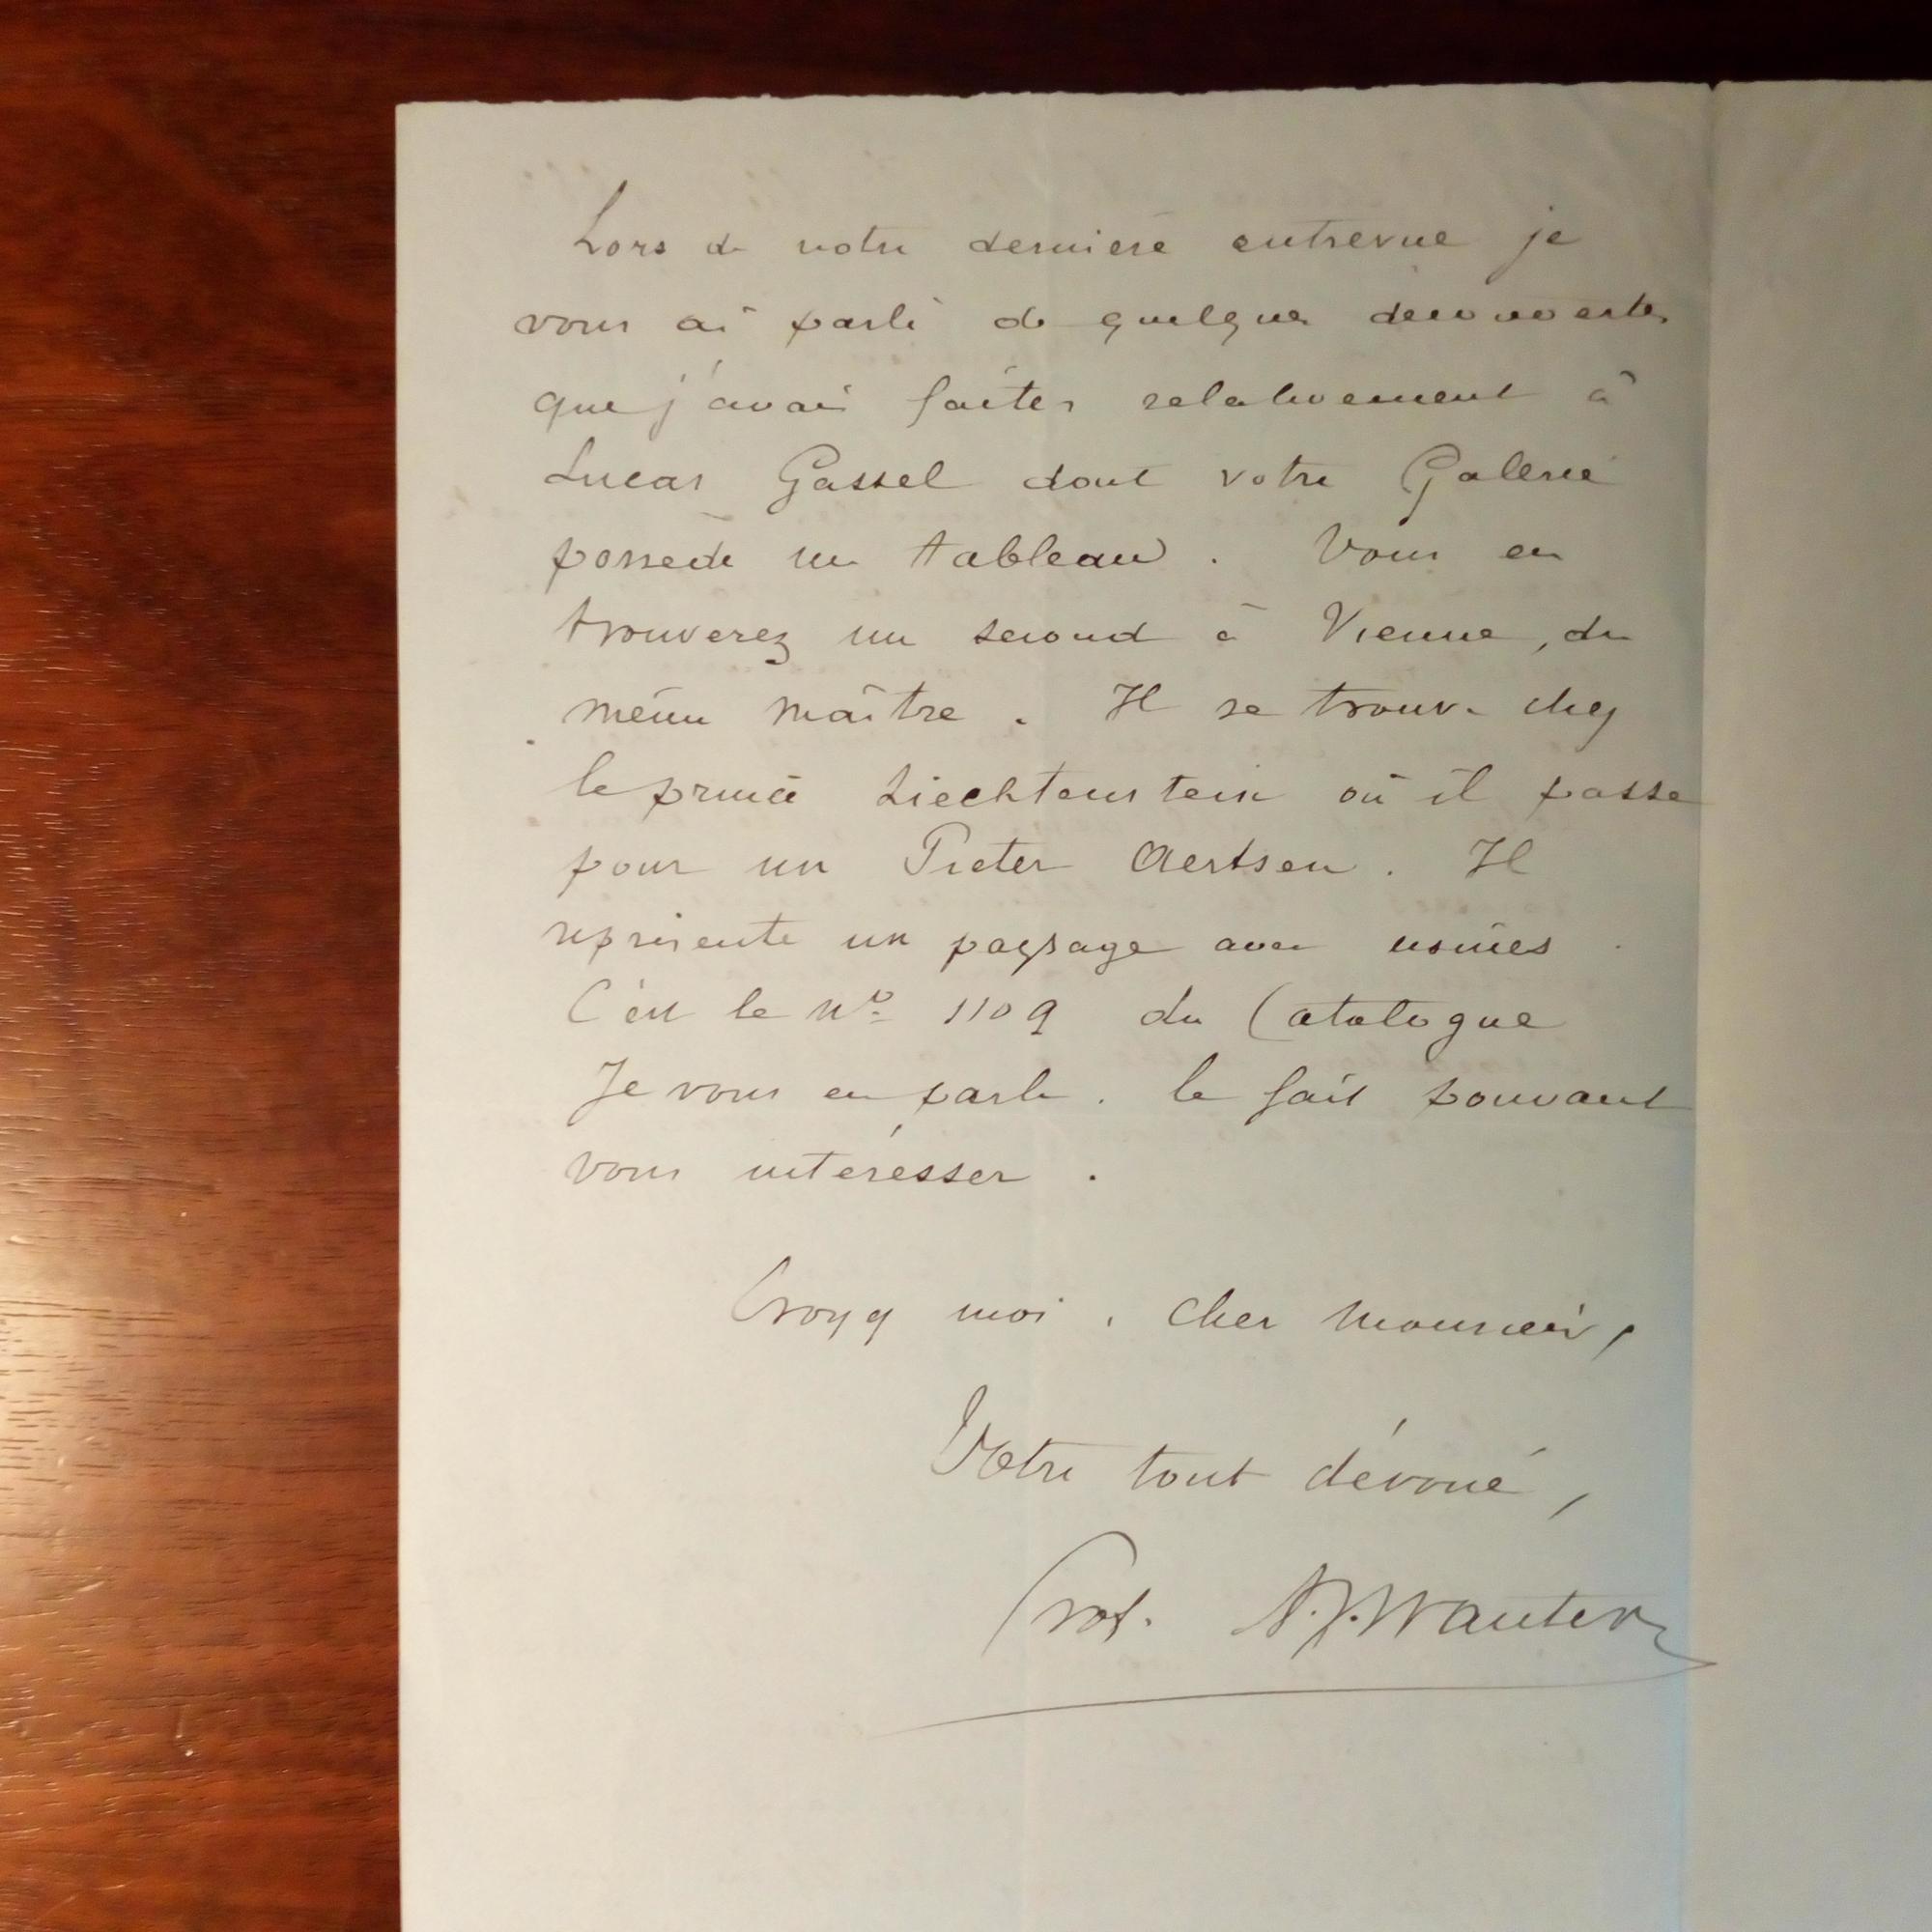 Lors de notre dernière entrevue je
vous ai parlé de quelques découvertes
que j'avais faites relativement à
Lucas Gassel dont votre Galerie
possède un tableau. Vous en
trouverez un second à Vienne, du
même maître. Il se trouve chez
le prince Liechtenstein où il passe
pour un Pieter Aertsen. Il
représente un paysage avec usines.
C'est le No 1109 du Catalogue
Je vous en parle. le fait pouvant
vous intéresser.
Croyez moi, cher Monsieur,
Votre tout dévoué,
Prof. A.J. Wauters